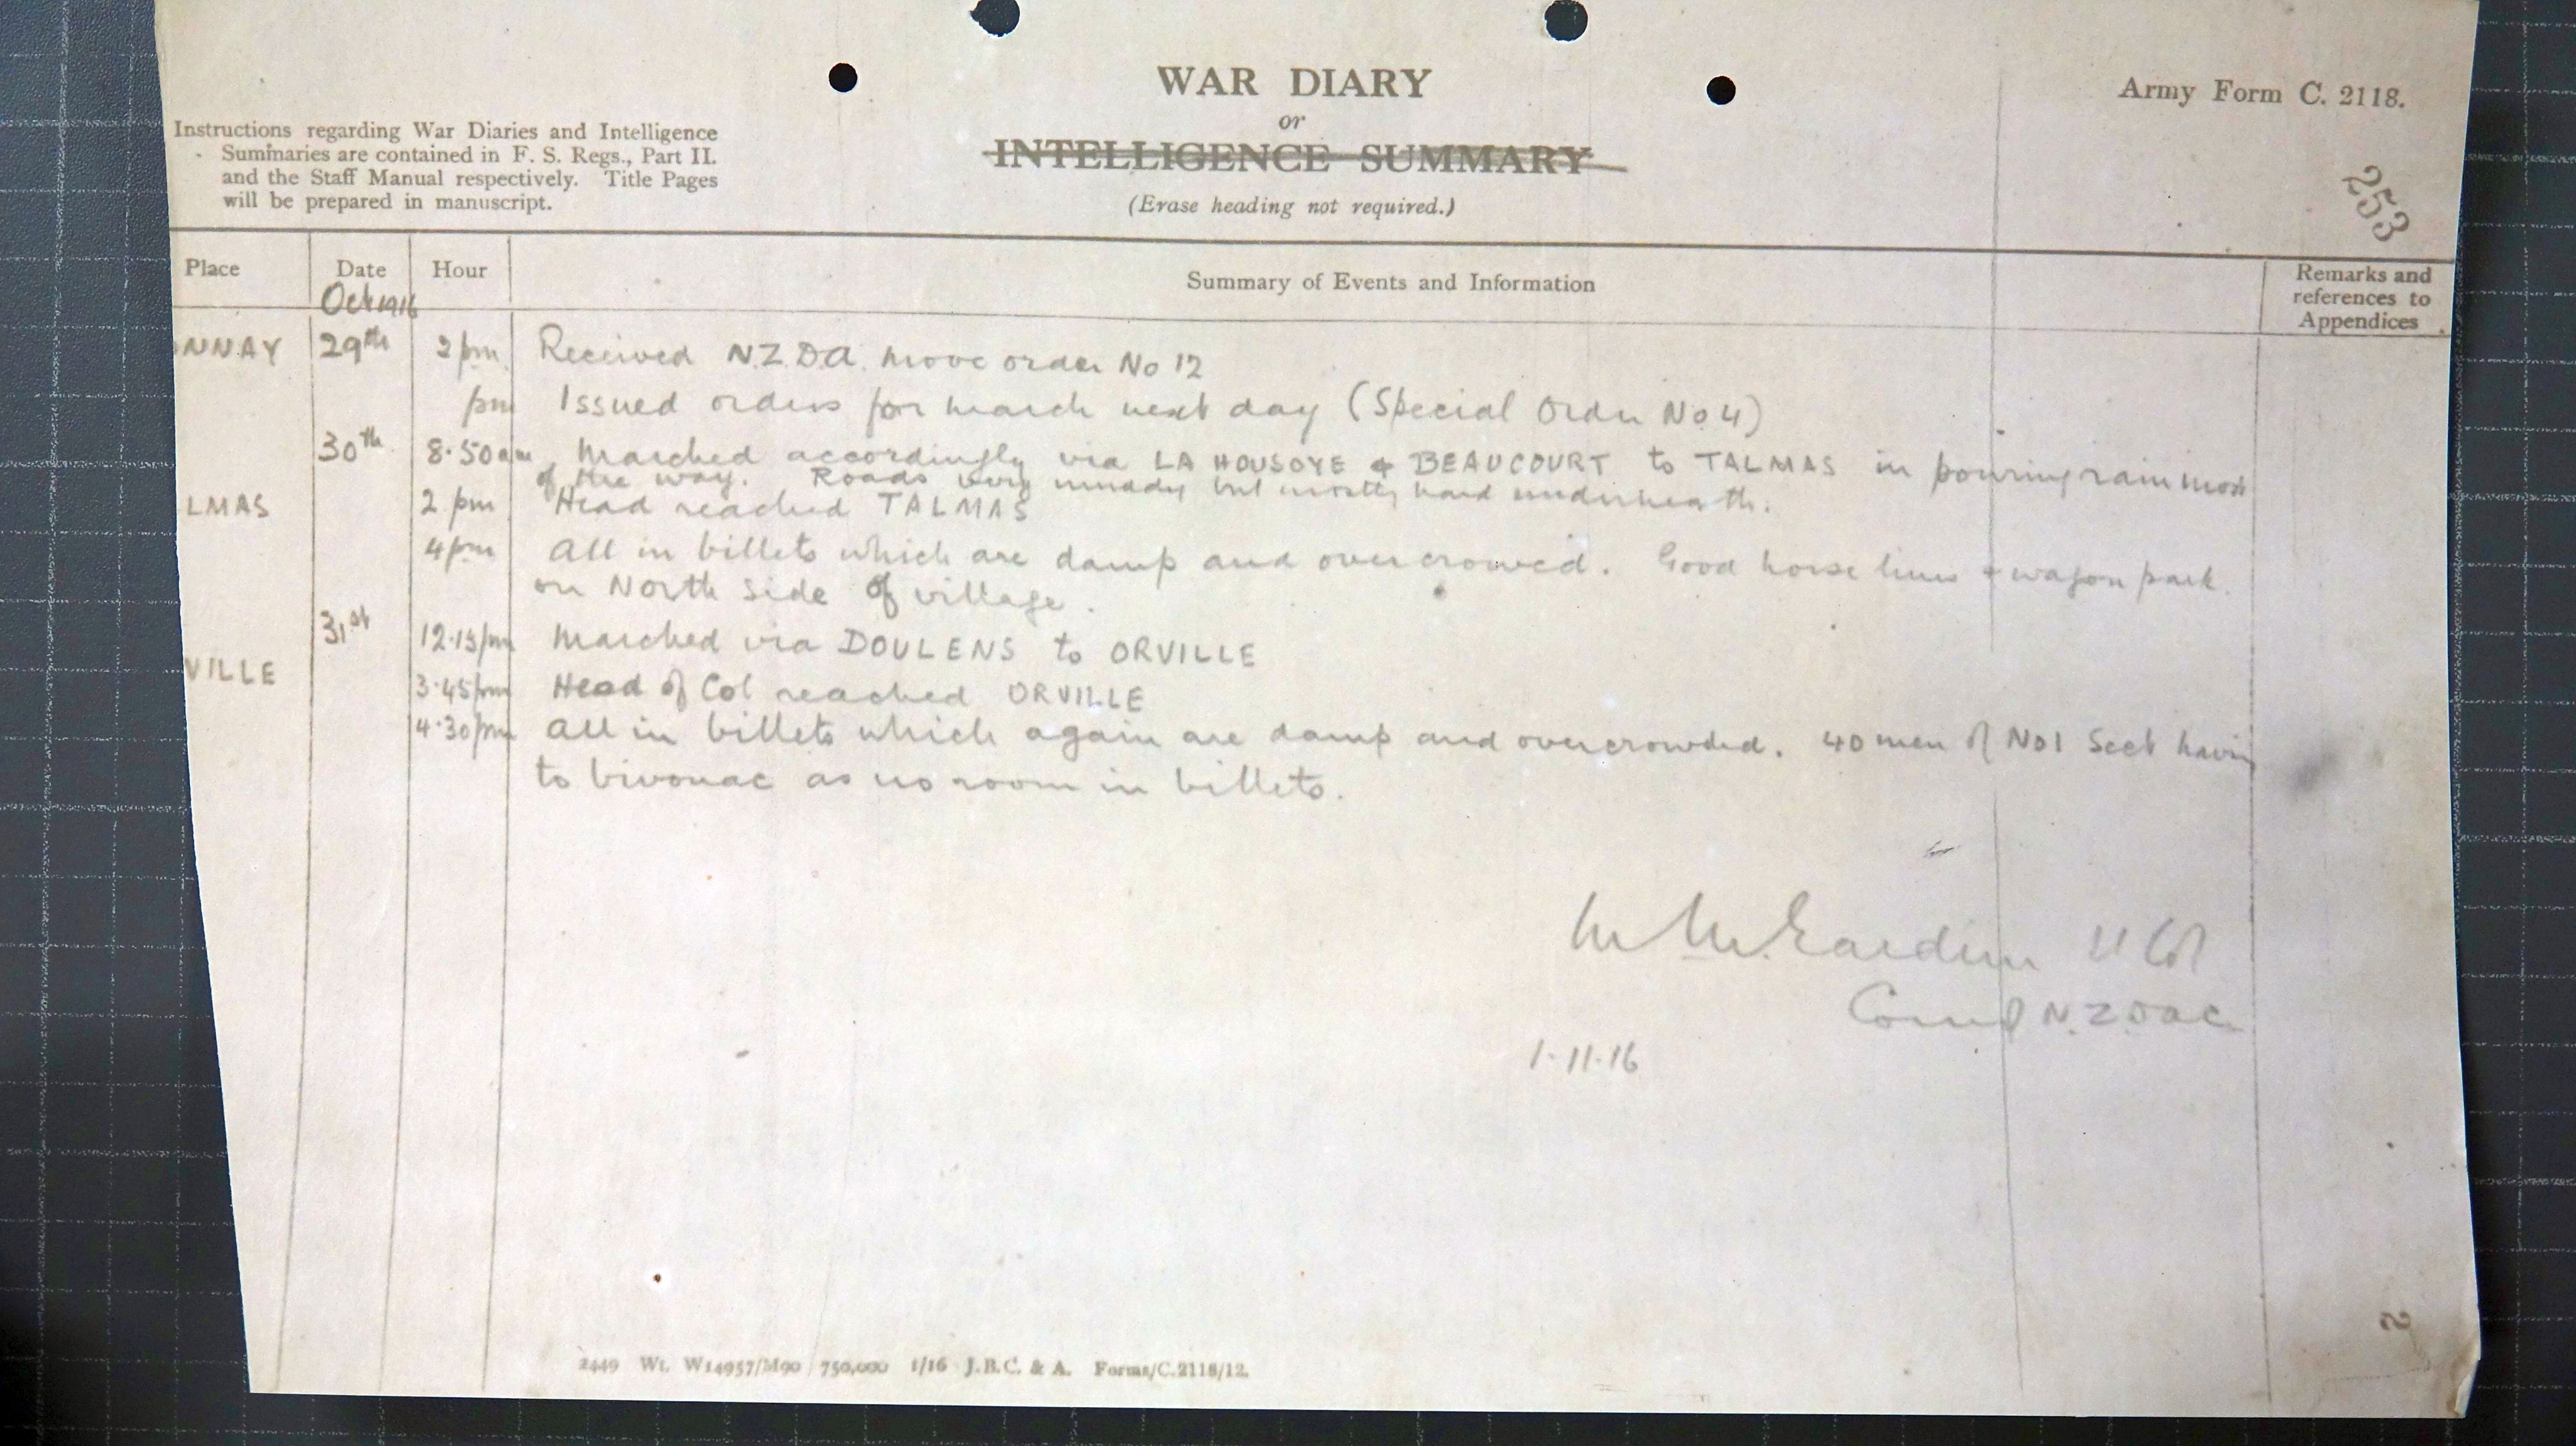 WAR DIARY
or
INTELLIGENCE SUMMARY
(Erase heading not required.)
Army Form C. 2118.
Instructions regarding War Diaries and Intelligence
Summaries are contained in F. S. Regs., Part II.
and the Staff Manual respectively. Title Pages
will be prepared in manuscript.
253
Place Date Hour Summary of Events and Information Remarks and
references to
Appendices
Oct 1916
NNAY 29th 2 pm Received N.Z.D.A. move order No 12
pm Issued orders for march next day (Special Order No 4)
30th 8.50am Marched accordingly via LA HOUSOYE & BEAUCOURT to TALMAS in pouring rain most
of the way. Roads very muddy but mostly hard underneath.
LMAS 2 pm Head reached TALMAS
4pm All in billets which are damp and overcrowed. Good horse lines & wagon park
on North side of village.
31st 12.15pm Marched via DOULENS to ORVILLE
VILLE 3.45pm Head of Col reached ORVILLE
4.30pm All in billets which again are damp and overcrowded. 40 men of No1 Sect having
to bivouac as no room in billets.
Lt Col
Comd N.Z.D.A.C.
1.11.16
2
2449 Wt. W14957/M90 750,000 1/16 J.B.C. & A. Forms/C.2118/12.